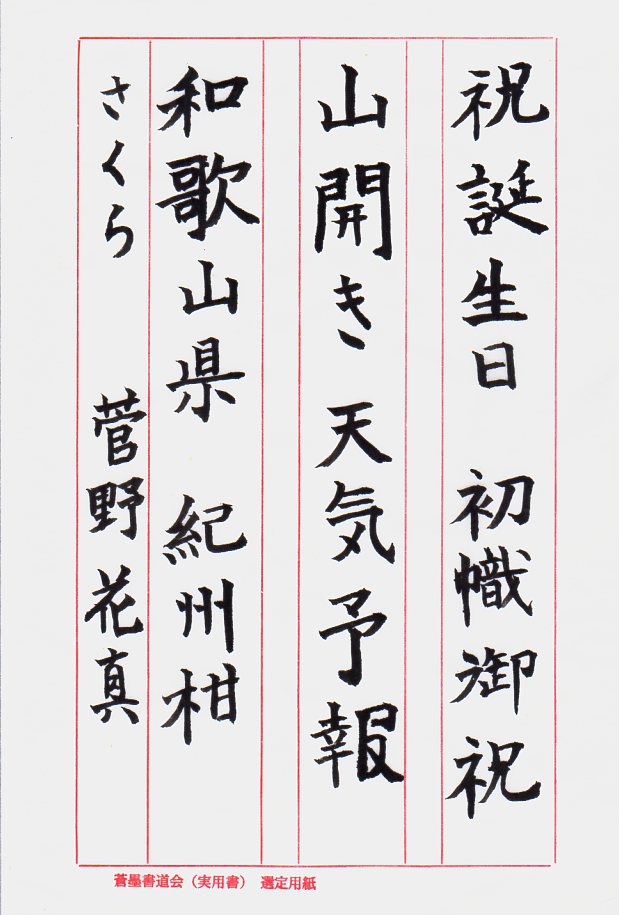 祝誕生日　初幟御祝
山開き　天気予報
和歌山県　紀州柑
さくら　菅野花真
蒼墨書道会（実用書）　選定用紙